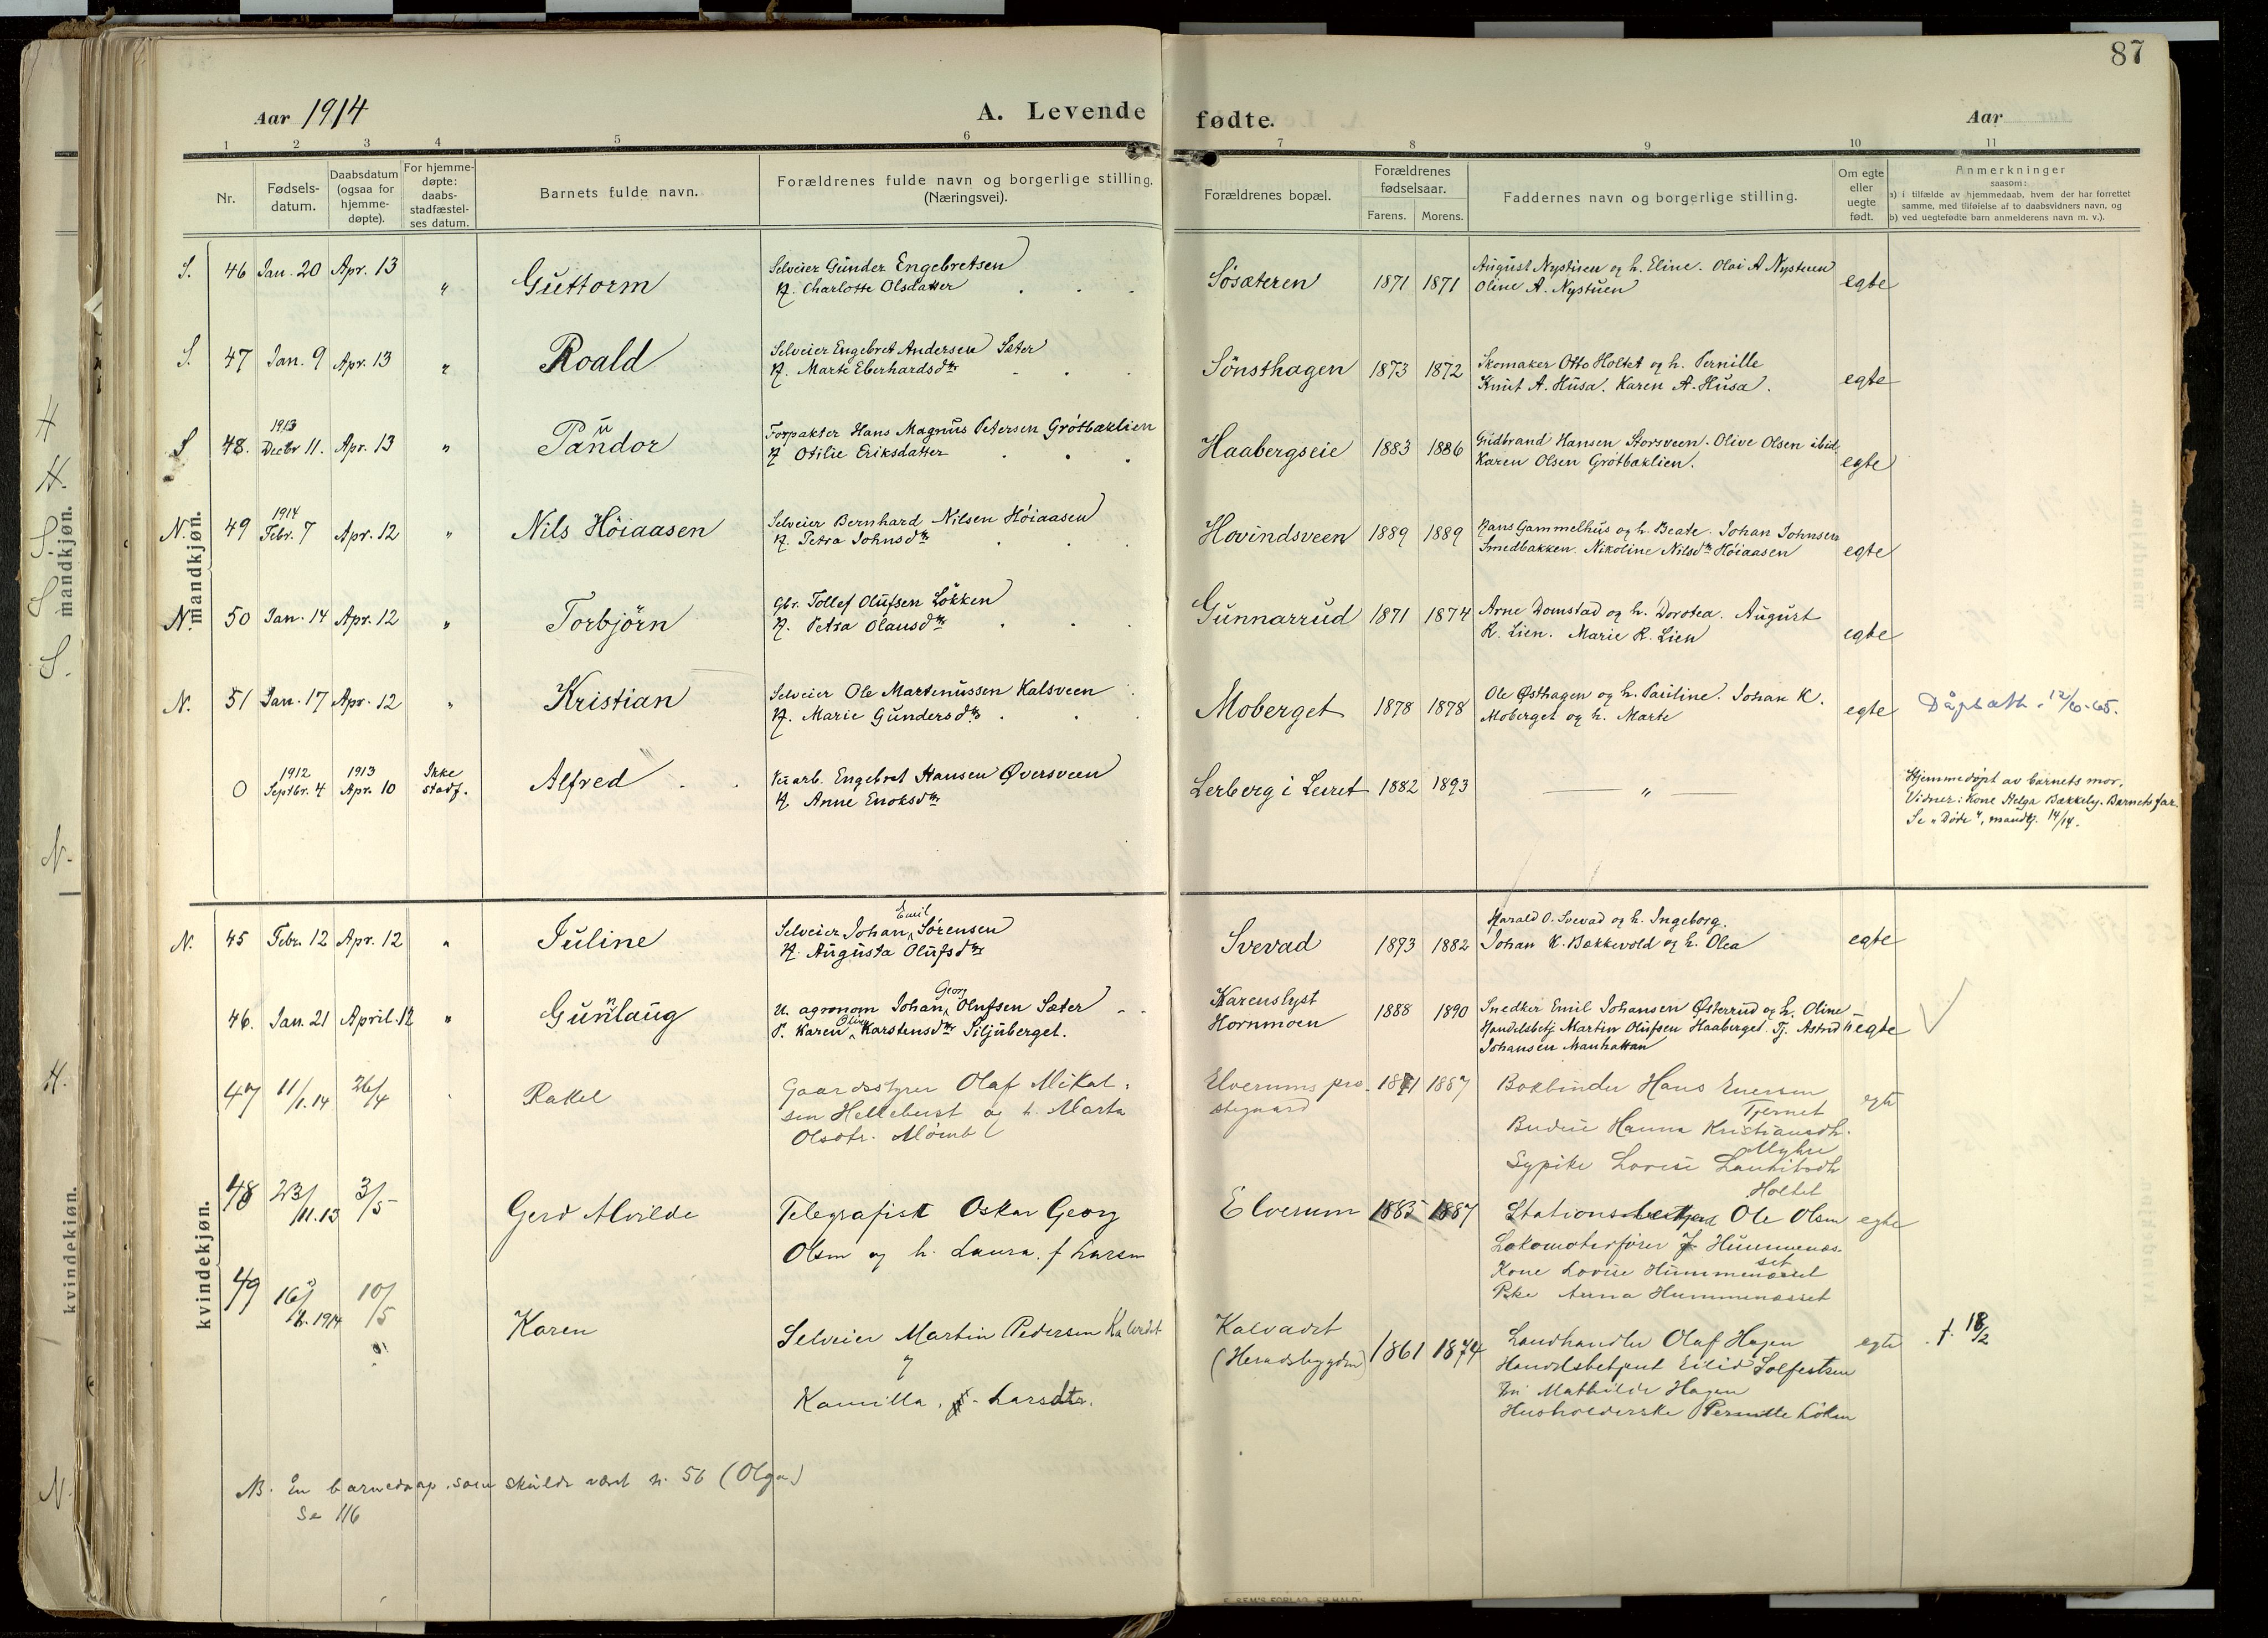 87
Aar 1914
A. Levende fødte.
Aar
1 2 3 4 5 6 7 8 9 10 11
Nr.
Fødsels-
datum.
Daabsdatum
(ogsaa for
hjemme-
døpte).
For hjemme-
døpte:
daabs-
stadfæstel-
ses datum.
Barnets fulde navn.
Forældrenes fulde navn og borgerlige stilling.
(Næringsvei).
Forældrenes bopæl.
Forældrenes
fødselsaar.
Farens. Morens.
Faddernes navn og borgerlige stilling.
Om egte
eller
uegte
født.
Anmerkninger
saasom:
a) i tilfælde av hjemmedaab, hvem der har forrettet
samme, med tilføielse af to daabsvidners navn, og
b) ved uegtefødte barn anmelderens navn m. v.).
mandkjøn.
S. 46 Jan. 20 Apr. 13 " Guttorm
Selveier Gunder Engebretsen
H. Charlotte Olsdatter
Søsæteren 1871 1871
August Nystuen og h. Eline. Olai A Nystuen
Oline A. Nystuen
egte
S. 47 Jan. 9 Apr. 13 " Roald
Selveier Engebret Andersen Sæter
H. Marte Eberhardsdtr
Sönsthagen 1873 1872
Skomaker Otto Holtet og h. Pernille
Knut A. Husa. Karen A. Husa.
egte
S 48. 1913 Decbr 11. Apr. 13 " Pandor
u
Forpakter Hans Magnus Petersen Grötbæklien
H Otilie Eriksdatter
Haabergseie 1883 1886
Gudbrand Hansen Storsveen. Olive Olsen ibid.
Karen Olsen Grötbæklien.
egte
N. 49 1914 Febr. 7 Apr. 12 " Nils Höiaasen
Selveier Bernhard Nilsen Höiaasen
H. Petra Johnsdtr
Hovindsveen 1889 1889
Hans Gammelhus og h. Beate. Johan Johnsen
Smedbakken. Nikoline Nilsdtr Höiaasen
egte
N. 50 Jan. 14 Apr. 12 " Torbjörn
Gbr. Tollef Olufsen Lökken
H. Petra Olausdtr
Gunnarrud 1871 1874
Arne Domstad og h. Dorotea. August
R. Lien. Marie R. Lien
egte
N. 51 Jan. 17 Apr. 12 " Kristian
Selveier Ole Martinussen Kalsveen
H. Marie Gundersdtr
Moberget 1878 1878
Ole Østhagen og h. Pauline. Johan K.
Moberget og h. Marte
egte
Dåpsatt. 12/6-65.
0 1912 Septbr. 4 1913 Apr. 10 Ikke stadf. Alfred
Veiarb. Engebret Hansen Øversveen
H Anne Enoksdtr
Lerberg i Leiret 1882 1893
"
Hjemmedøpt av barnets mor.
Vidner: Kone Helga Bækkely. Barnets far.
Se "Döde", mandkj. 14/14.
kvindekjøn.
N. 45 Febr. 12 Apr. 12 " Juline
Emil
Selveier Johan Sörensen
H. Augusta Olufsdtr
Svevad 1893 1882
Harald O. Svevad og h. Ingeborg.
Johan K. Bækkevold og h. Olea
egte
46. Jan. 21 April 12 " Gunlaug
n
Georg
U. agronom Johan Olufsen Sæter
Oline
P. Karen Karstensdtr Siljuberget.
Karenslyst
Hornmoen
1888 1890
Snedker Emil Johansen Østerrud og h. Oline
Handelsbetj. Martin Olufsen Haaberget Tj. Astrid
Johansen Manhattan
egte
47 11/1.14 26/4 Rakel
Gaardsstyrer Olaf Mikal-
sen Helleberst og h. Marta
Olsdtr.
Elverums pre-
stegaard
1871 1887
Bokbinder Hans Enersen
Tjernet
Budeie Hanna Kristiansdtr.
Myhre
Sypike Lovise
Holtet
egte
48 23/11.13 3/5 Gerd Alvilde
Telegrafist Oskar Georg
Olsen og h. Laura f. Larsen
Elverum 1885 1887
Ole Olsen
Lokomotivfører J Hummenæs-
set
Kone Lovise Hummenæsset
Pike Anna Hummenæsset
egte
49 16/2. 1914 10/5 Karen
Selveier Martin Pedersen Kalvadet
Kamilla. Larsdtr.
Kalvadet
(Heradsbygden)
1861 1874
Landhandler Olaf Hagen
Handelsbetjent Eilif Solfestsen
Fru Mathilde Hagen
Husholderske Pernille Löken
egte
† 18/2
NB. En barnedaap som skulde været nr. 56 (Olga)
Se 116